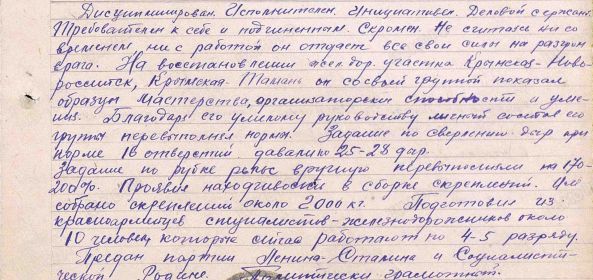 Дисциплинирован. Исполнителен. Инициативен. Деловой сержант.
Требователен к себе и подчиненным. Скромен. Не считаясь ни со
временем ни с работой он отдает все свои силы на разгром
врага. На восстановлении жел.дор. участка Крымская-Ново-
российск, Крымская-Тамань он со своей группой показал
образцы мастерства, организаторских способности и уме-
ния. Благодаря его умелому руководству личный состав его
группы перевыполнял нормы. Задание по сверлению дыр при
норме 16 отверстий давали по 25-28 дыр.
Задание по рубке рельс вручную перевыполняли на 170-
200%. Проявил находчивость в сборке скреплений. Им
собрано скреплений около 2000 кг. Подготовил из
красноармейцев специалистов-железнодорожников около
10 человек, которые сейчас работают по 4-5 разряду.
Предан партии Ленина-Сталина и Социалисти-
ческой Родине. Политически грамотный.